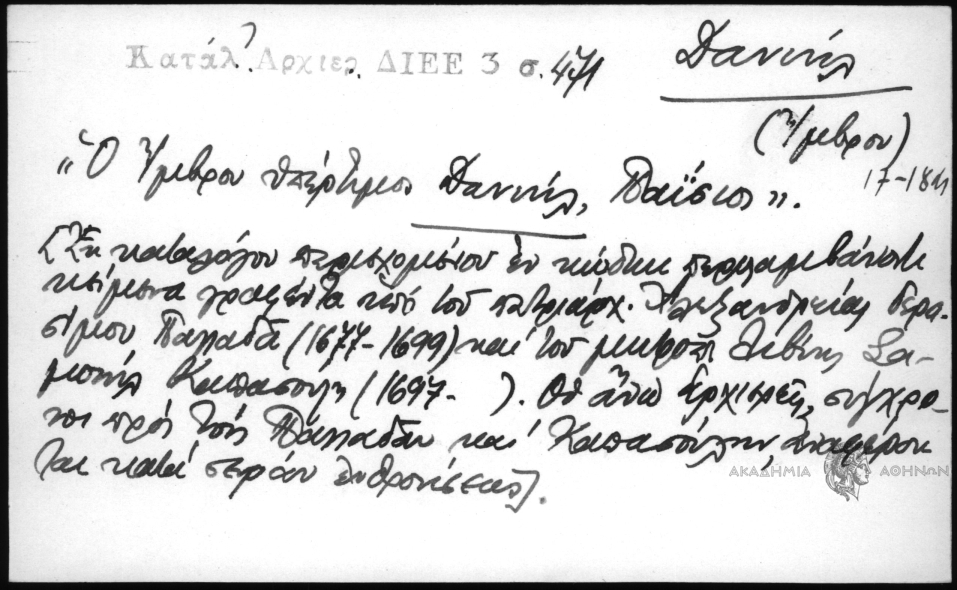 Κατάλ. Ἀρχιερ. ΔΙΕΕ 3 σ. 471
Δανιήλ
(Ἴμβρου)
17-18ος
"Ὁ Ἴμβρου ὑπέρτιμος Δανιήλ, Παΐσιος".
[Ἐκ καταλόγου περιεχομένου ἐν κώδικι περιλαμβάνοντι
κείμενα γραφέντα ὑπό τοῦ πατριάρχ. Ἀλεξανδρείας Γερα-
σίμου Παλλαδᾶ (1677-1699) καί τοῦ μητροπ. Λιβύης Σα-
μουήλ Καπασούλη (1697- ). Οἱ ἄνω ἀρχιερεῖς, σύγχρο-
νοι πρός τόν Παλλαδᾶν καί Καπασούλην, ἀναφέρον-
ται κατά σειράν ἐνθρονίσεως].
ΑΚΑΔΗΜΙΑ ΑΘΗΝΩΝ